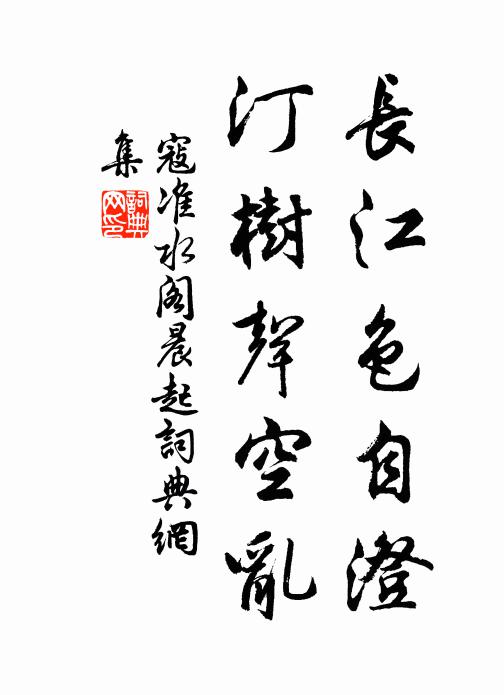 長江色自澄
汀樹聲空亂
寇准水阁晨起詞典網
集
詞典网印